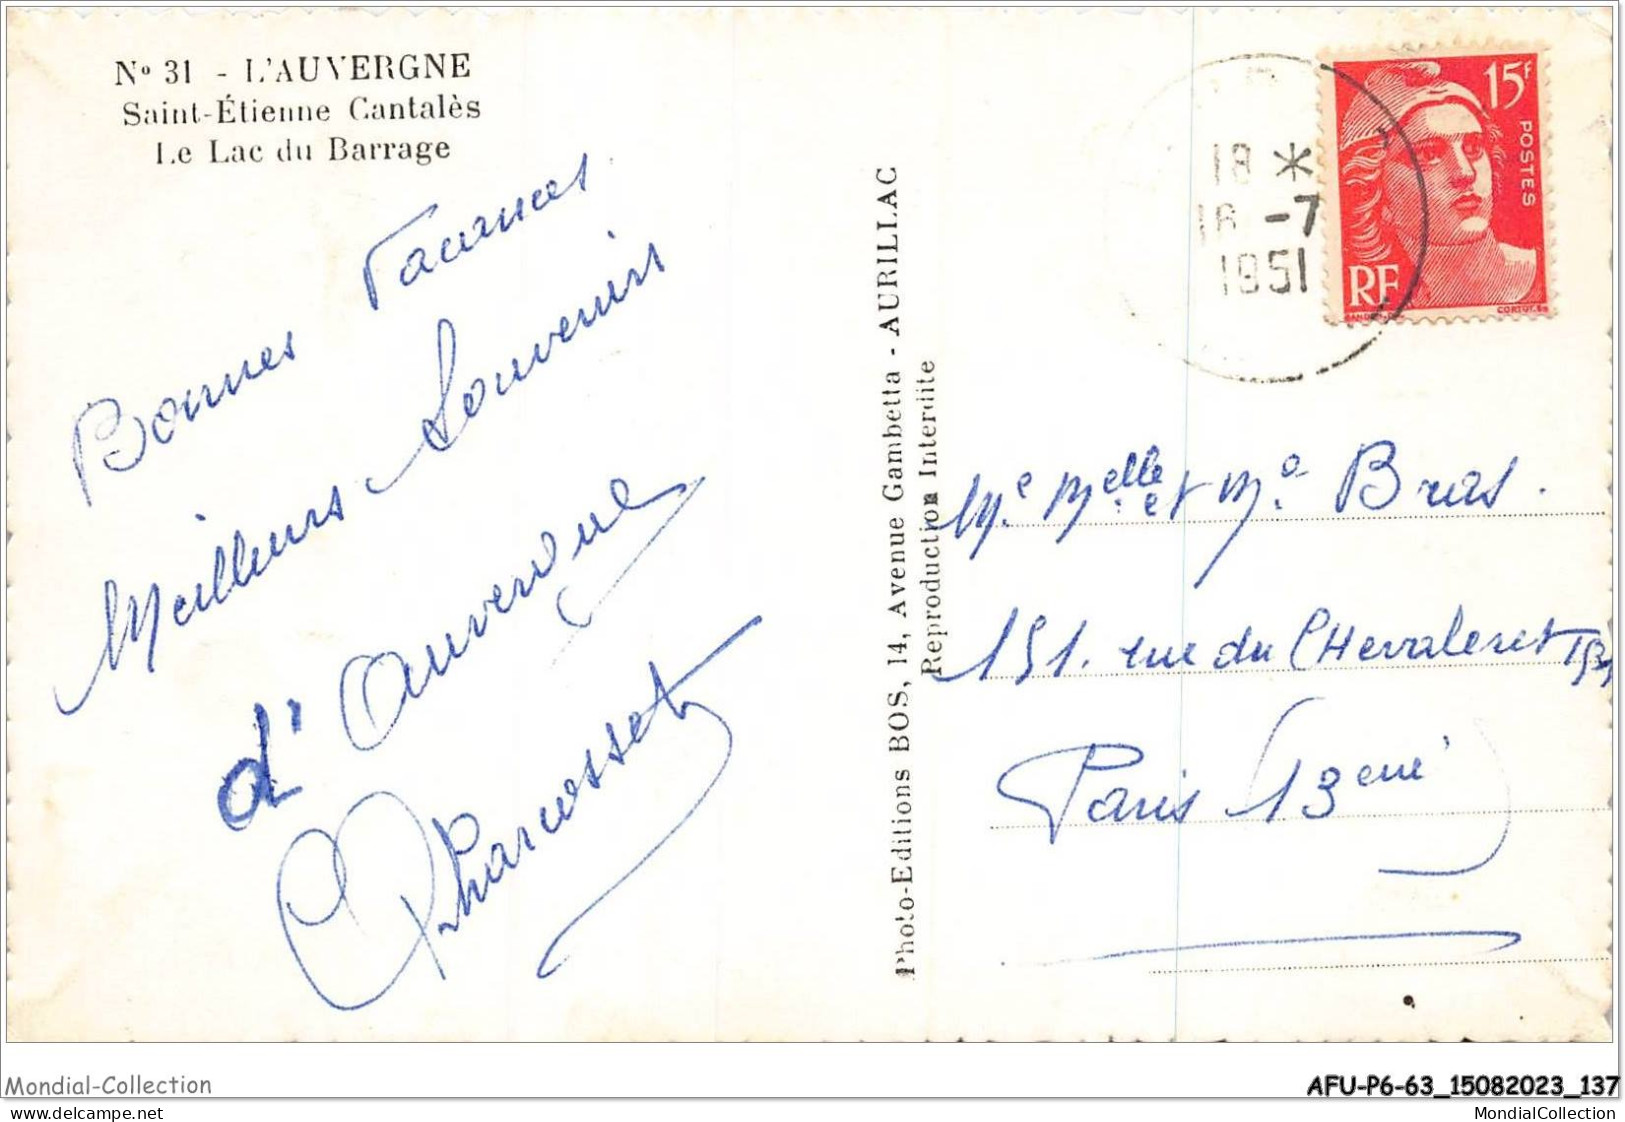 N° 31 - L'AUVERGNE
Saint-Étienne Cantalès
Le Lac du Barrage
Bonnes Vacances
Meilleurs Souvenirs
d'Auvergne
Photo-Editions BOS, 14, Avenue Gambetta - AURILLAC
Reproduction Interdite
18 *
16 -7
1951
15F
POSTES
RF
Me Melle et Mr Bras.
151. rue du CHevaleret
Paris 13eme
Mondial-Collection
AFU-P6-63_15082023_137
MondialCollection